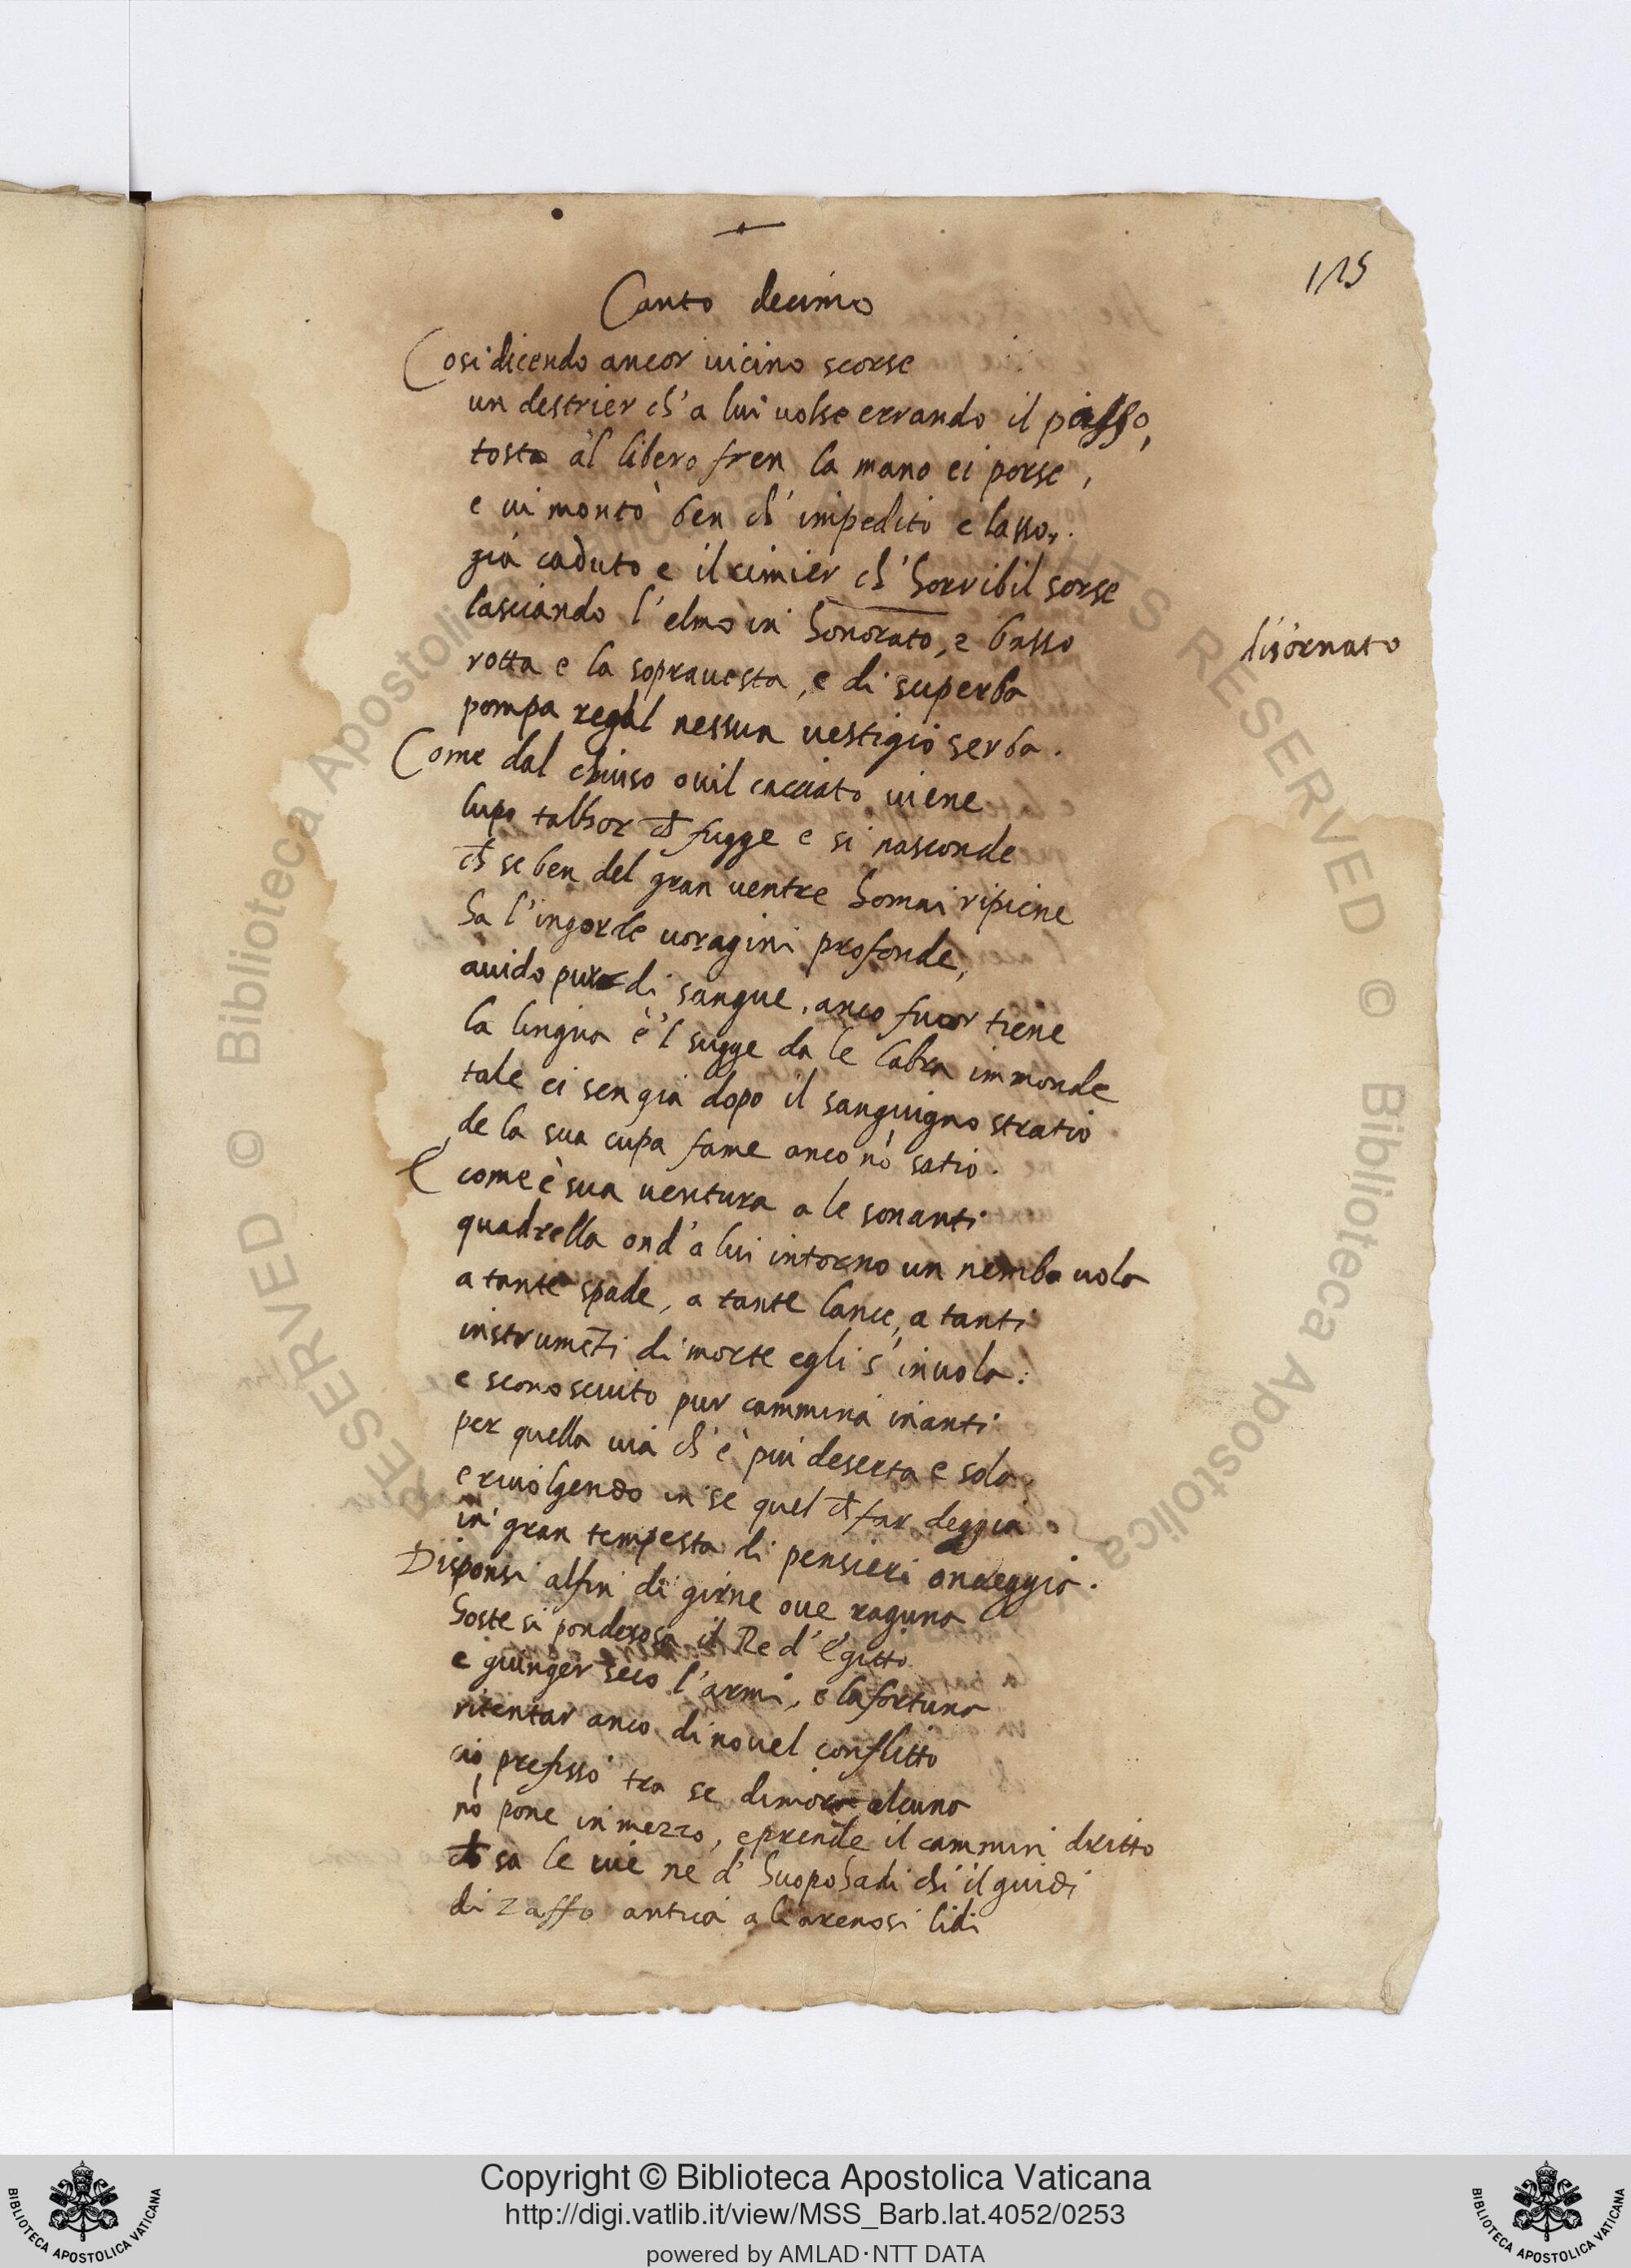 115
Canto decimo
Cosi dicendo ancor uicino scorse
un destrier ch'a lui uolse errando il passo,
tosto al libero fren la mano ei porse,
e ui montò ben ch'impedito e lasso.
già caduto e il cimier ch'horribil sorse
lasciando l'elmo in honorato, e basso
disornato
rotta e la soprauesta, e di superba
pompa regal nessun uestigio serba.
Come dal chiuso ouil cacciato uiene
lupo talhor ch̄ fugge e si nasconde
ch̄ se ben del gran uentre homai ripiene
ha l'ingorde uoragini profonde,
auido pur di sangue, anco fuor tiene
la lingua e'l sugge da le labra immonde
tale ei sen gia dopo il sanguigno stratio
de la sua cupa fame anco nō satio.
E come è sua uentura a le sonanti
quadrella ond'a lui intorno un nembo uola
a tante spade, a tante lance, a tanti
instrumēti di morte egli s'inuola:
e sconosciuto pur cammina inanti
per quella uia ch'è piu deserta e sola,
e riuolgendo in se quel ch̄ far deggia
in gran tempesta di pensieri ondeggia.
Disponsi alfin di girne oue raguna
hoste si ponderosa il Re d'Egitto
e giunger seco l'armi, e la fortuna
ritentar anco di nouel conflitto
ciò prefisso tra se dimora alcuna
nō pone in mezzo, e prende il cammin dritto
ch̄ sa le uie ne d'huopo ha di chi il guidi
di Zaffo antica a l'arenosi lidi
Copyright © Biblioteca Apostolica Vaticana
http://digi.vatlib.it/view/MSS_Barb.lat.4052/0253
powered by AMLAD·NTT DATA